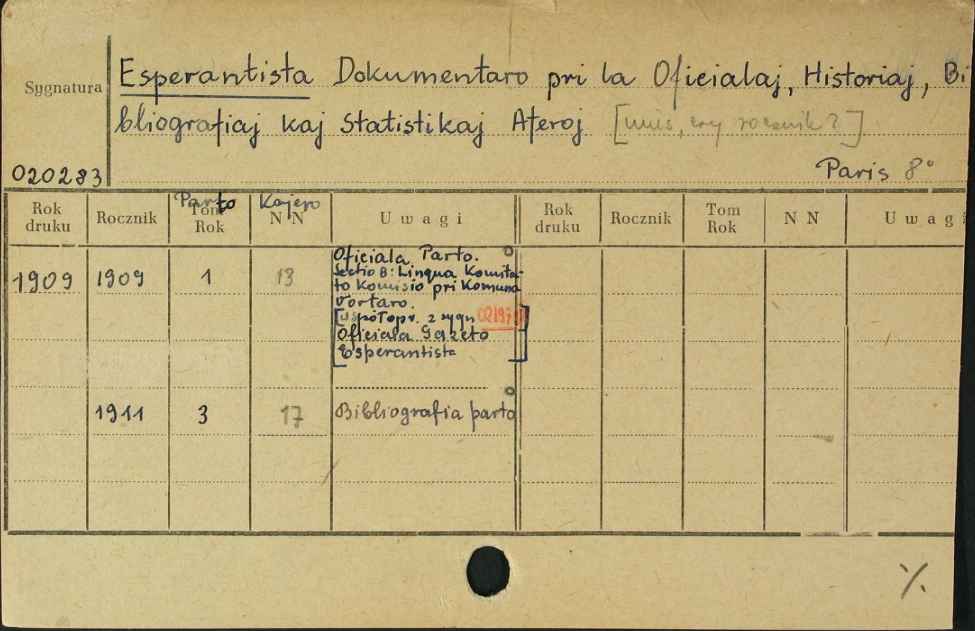 Sygnatura
Esperantista Dokumentaro pri la Oficialaj, Historiaj, Bi
bliografiaj kaj Statistikaj Aferoj [unus, czy rocznik?]
020283
Paris 8°
Rok druku
Rocznik
Parto
Tom Rok
Kajero
N N
Uwagi
Rok druku
Rocznik
Tom Rok
N N
Uwagi
1909 1909 1 13
Oficiala Parto.
Sectio B: Lingua Komita-
to Komisio pri Komuna
Vortaro.
[współopr. z sygn
Oficiala Gazeto
Esperantista]
1911 3 17 Bibliografia parto